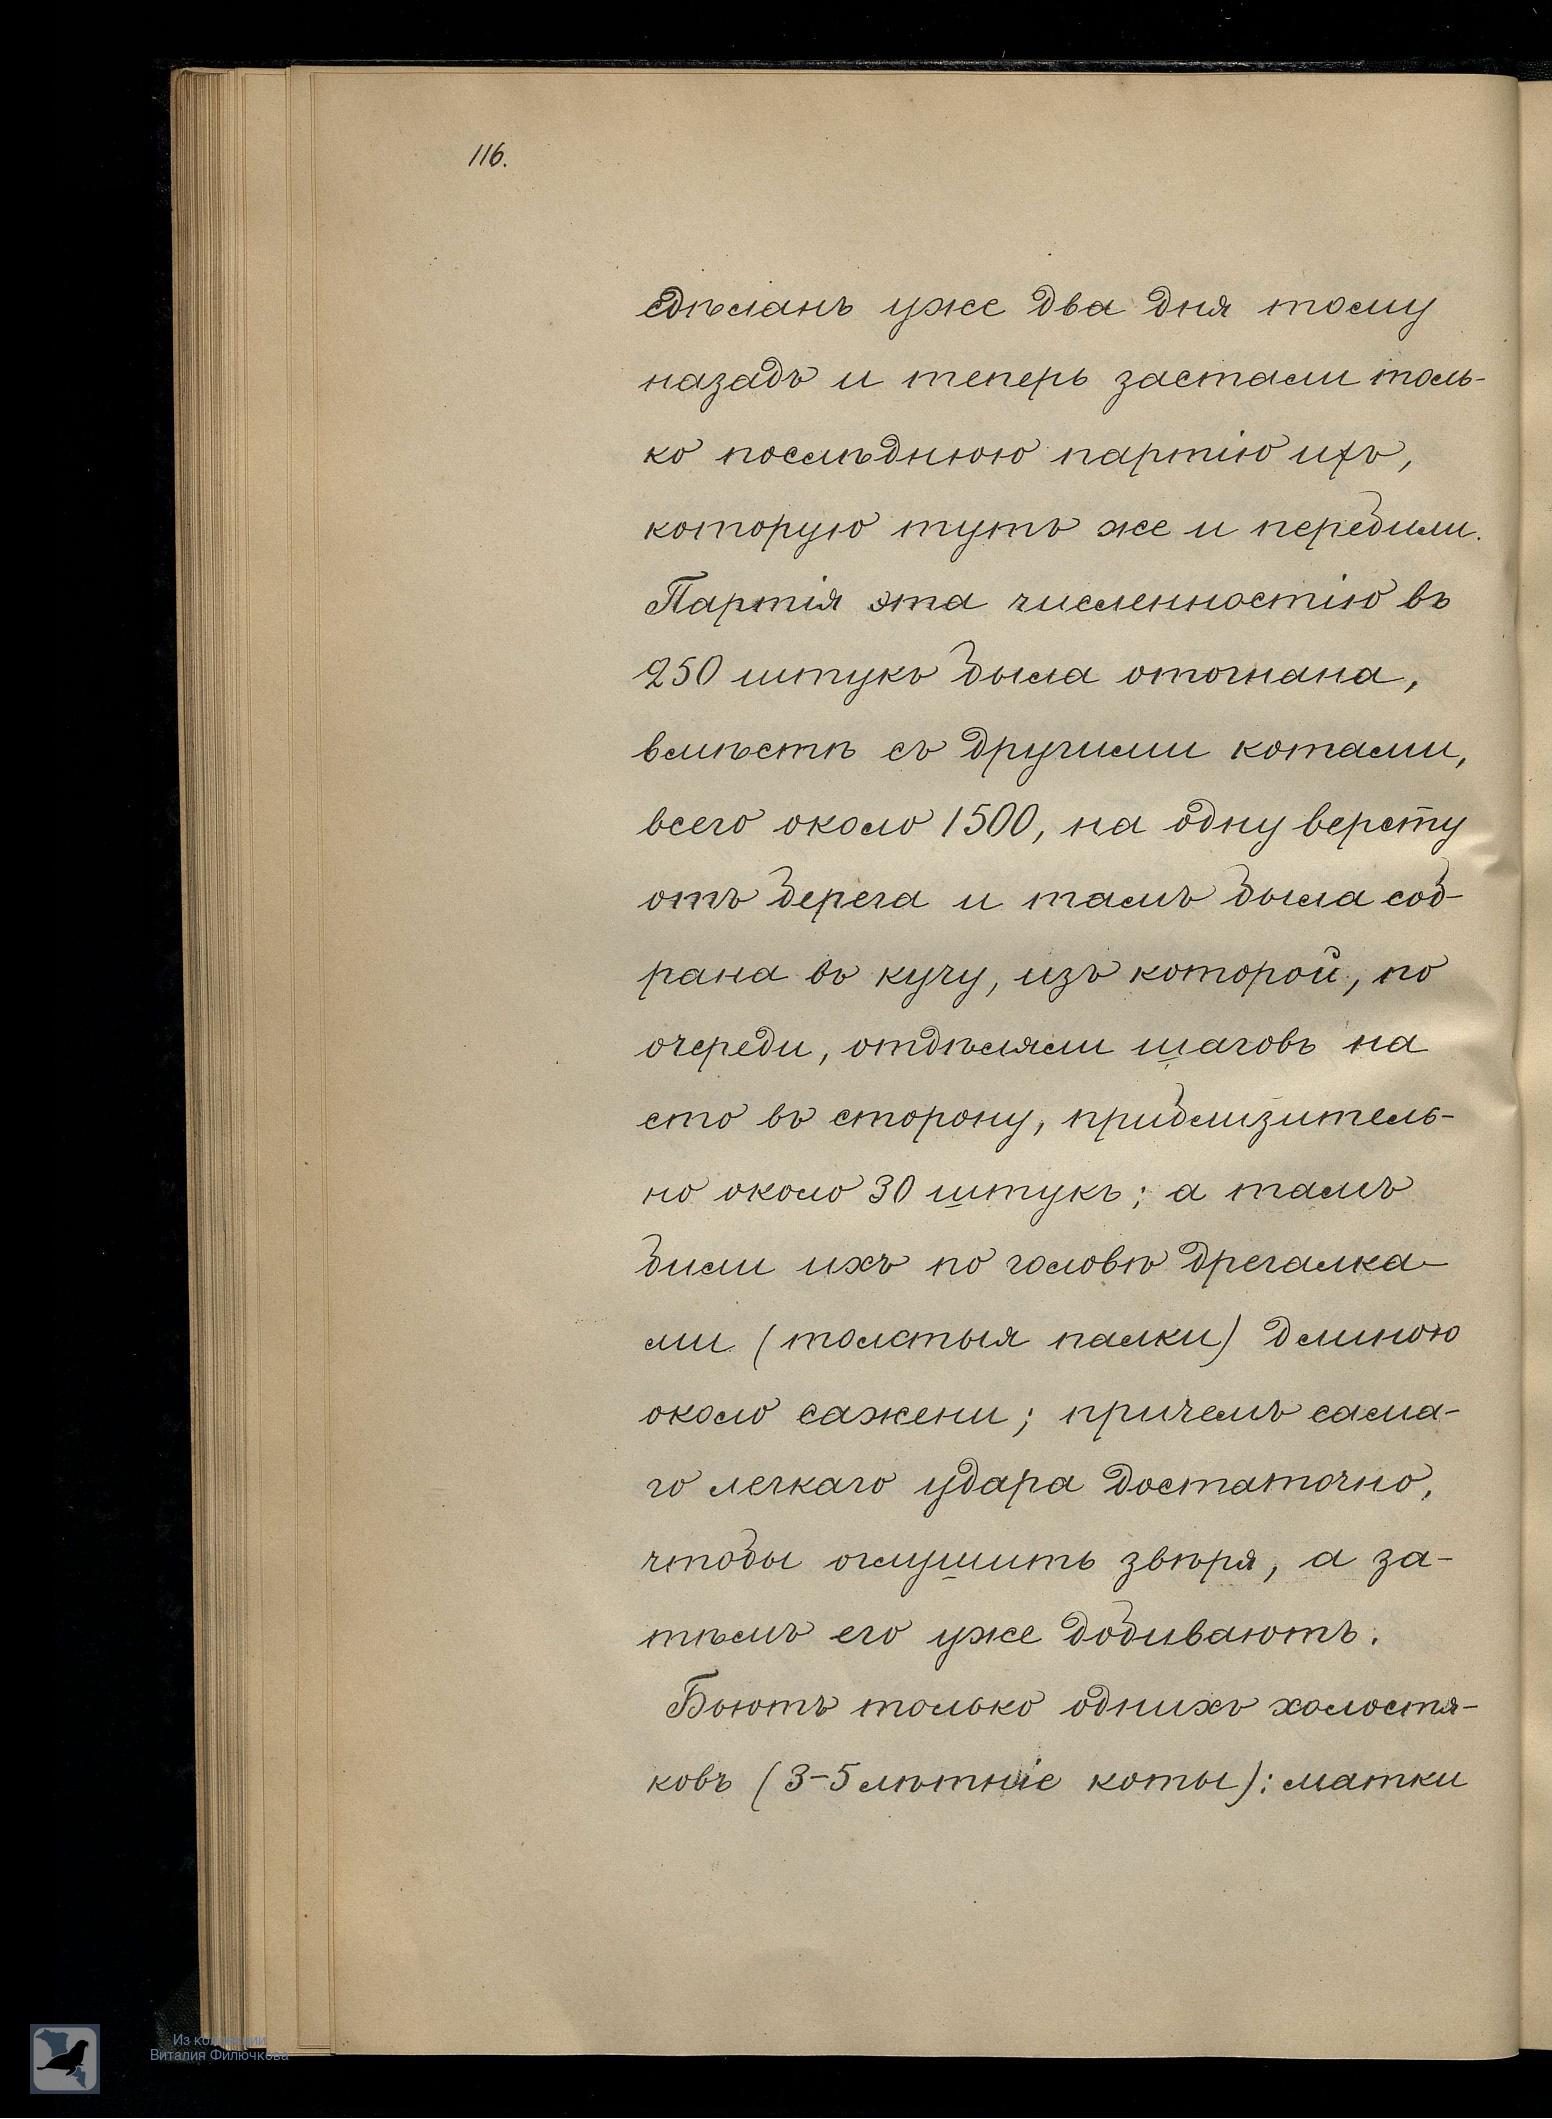 116.
сдѣланъ уже два дня тому
назадъ и теперь застали толь-
ко послѣднюю партію ихъ,
которую тутъ же и перебили.
Партія эта численностію въ
250 штукъ была отогнана,
вмѣстѣ съ другими котами,
всего около 1500, на одну версту
отъ берега и тамъ была соб-
рана въ кучу, изъ которой, по
очереди, отдѣляли шаговъ на
сто въ сторону, приблизитель-
но около 30 штукъ; а тамъ
били ихъ по головѣ дрегалка-
ми (толстыя палки) длиною
около сажени; причемъ сама-
го легкаго удара достаточно,
чтобы оглушить звѣря, а за-
тѣмъ его уже добиваютъ.
Бьютъ только однихъ холостя-
ковъ (3-5 лѣтніе коты): матки
Из коллекции
Виталия Филючкова